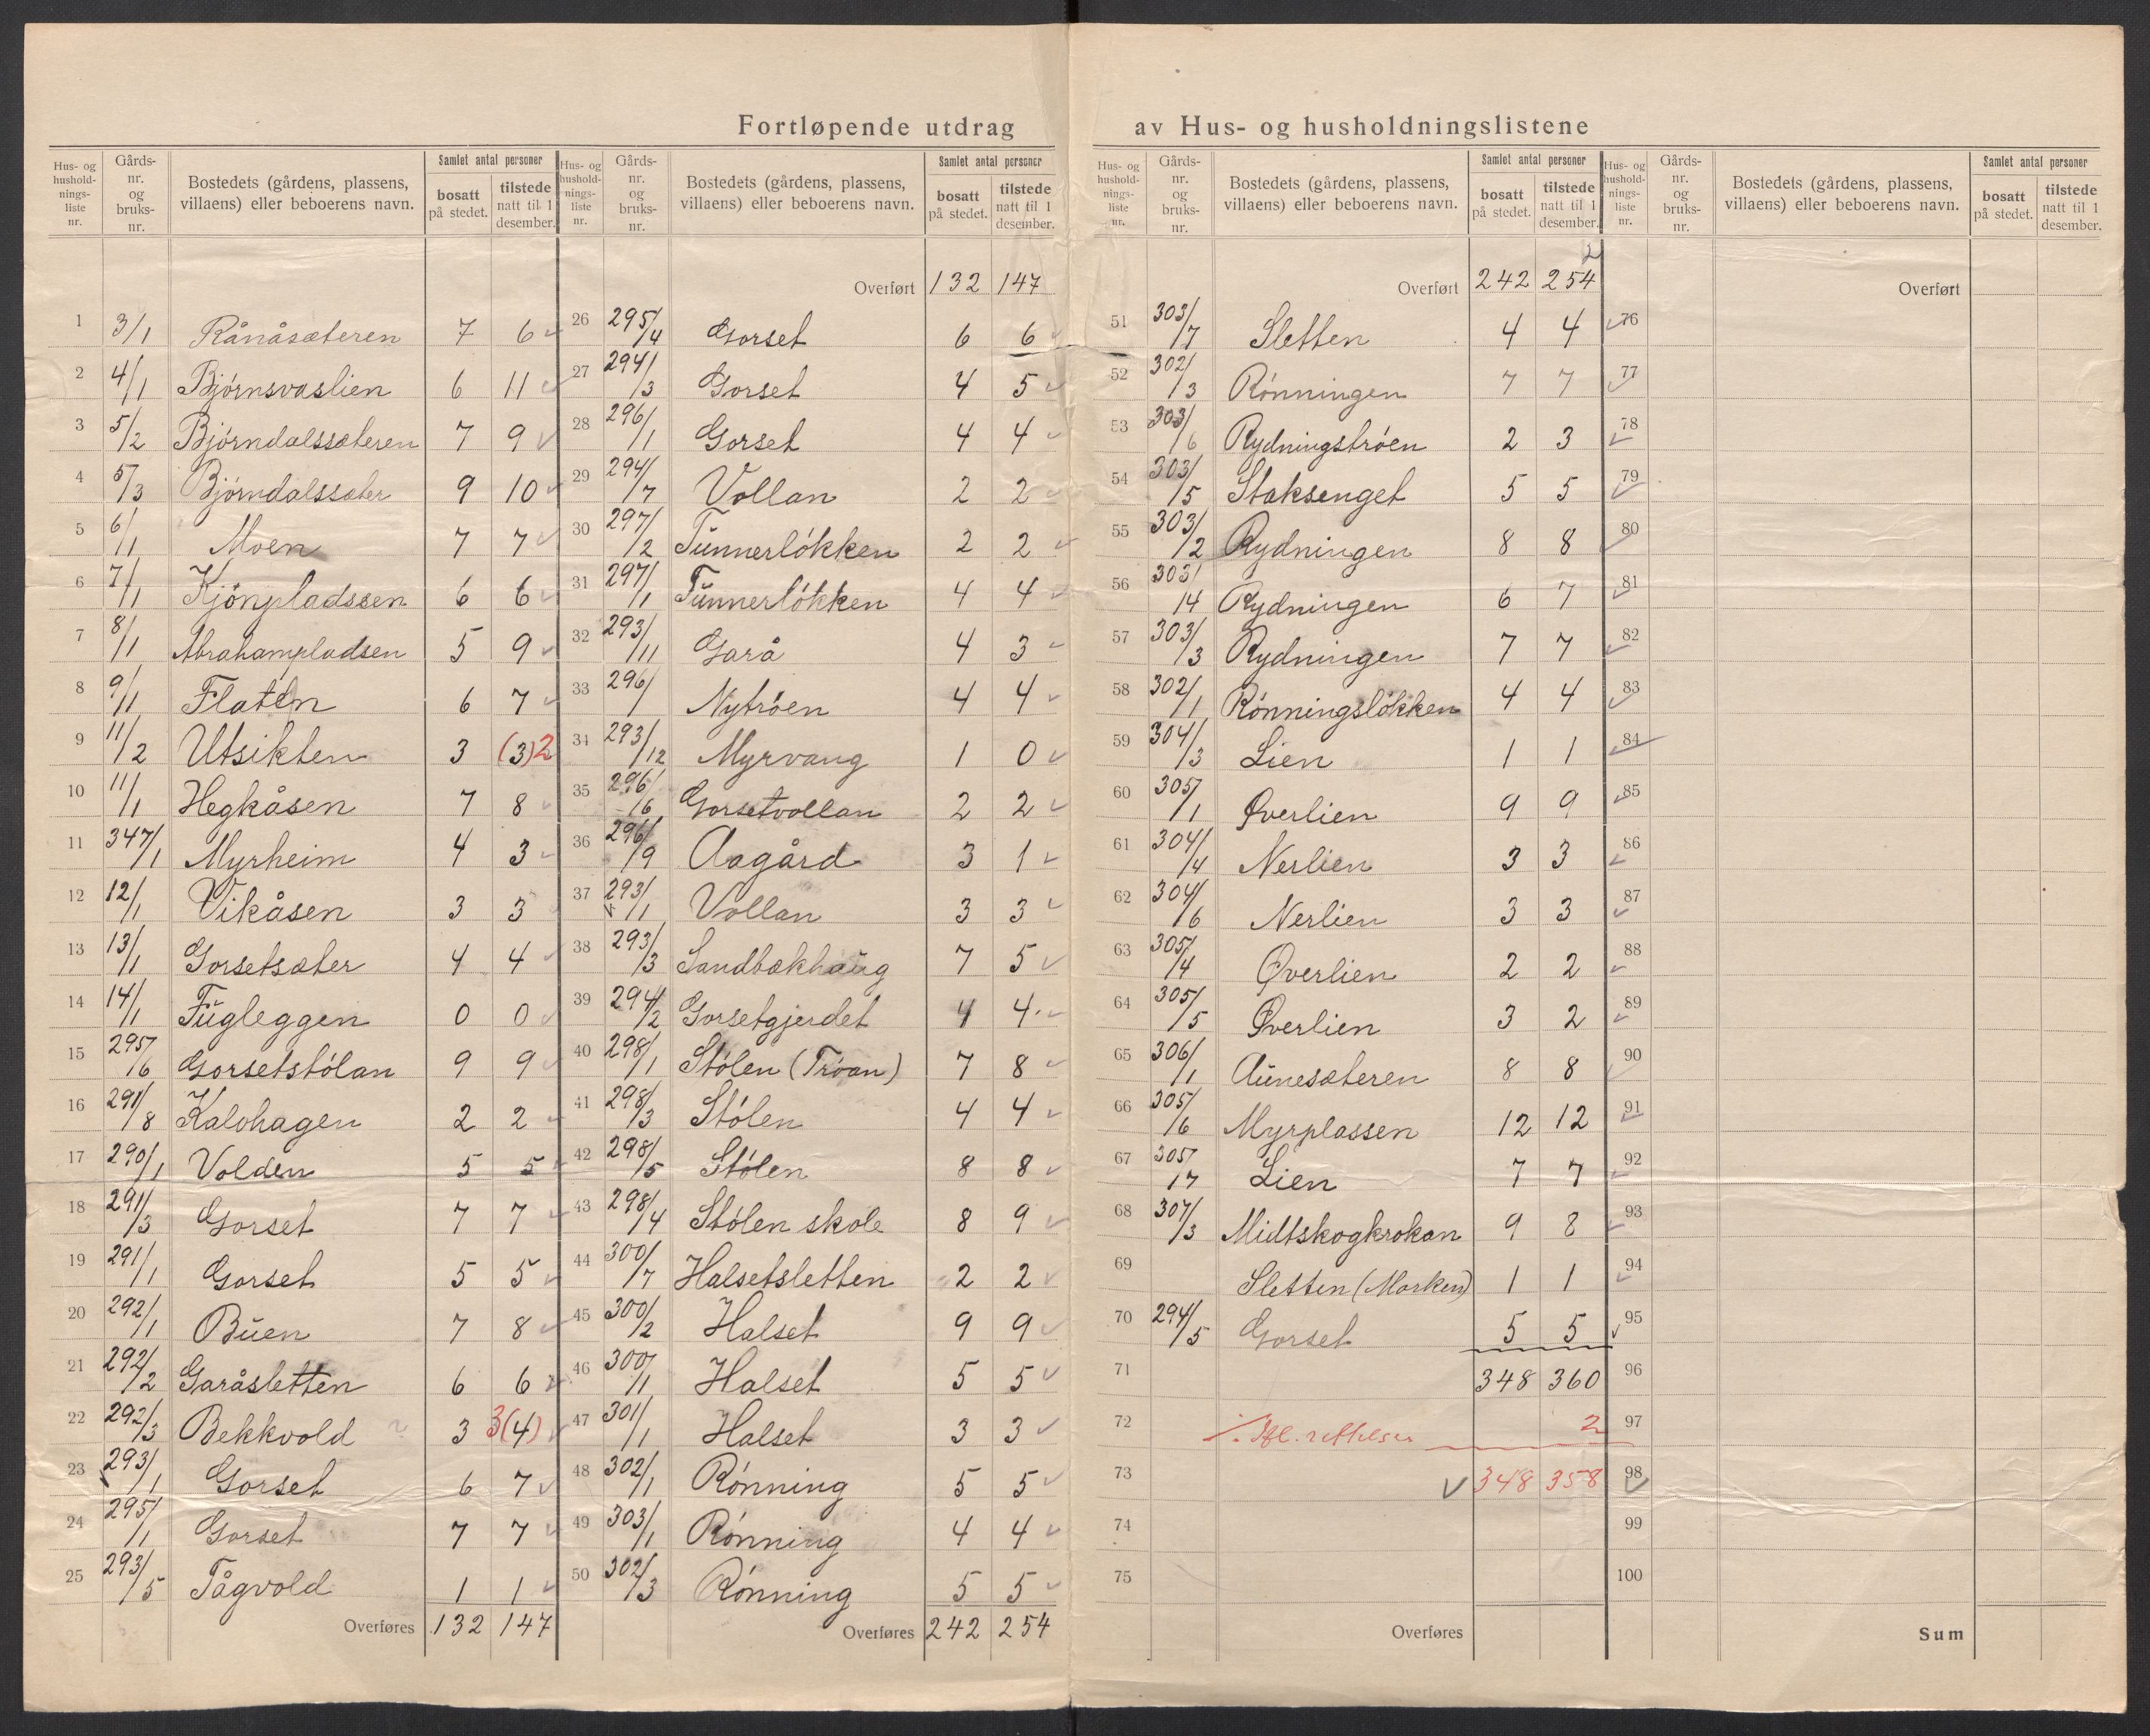 Fortløpende utdrag av Hus- og husholdningslistene
Hus- og husholdnings-liste nr. | Gårds-nr. og bruks-nr. | Bostedets (gårdens, plassens, villaens) eller beboerens navn. | Samlet antal personer | bosatt på stedet. | tilstede natt til 1 desember.
1 3/1 Rånåsæteren 7 6 ✓
2 4/1 Bjørnsvaslien 6 11 ✓
3 5/2 Bjørndalssæteren 7 9 ✓
4 5/3 Bjørndalssæter 9 10 ✓
5 6/1 Moen 7 7 ✓
6 7/1 Kjønpladssen 6 6 ✓
7 8/1 Abrahampladsen 5 9 ✓
8 9/1 Flaten 6 7 ✓
9 11/2 Utsikten 3 (3) 2
10 11/1 Hegkåsen 7 8 ✓
11 347/1 Myrheim 4 3 ✓
12 12/1 Vikåsen 3 3
13 13/1 Gorsetsæter 4 4 ✓
14 14/1 Fugleggen 0 0 ✓
15 295/6 Gorsetstølan 9 9 ✓
16 291/8 Kalohagen 2 2 ✓
17 290/1 Volden 5 5 ✓
18 291/3 Gorset 7 7 ✓
19 291/1 Gorset 5 5 ✓
20 292/1 Buen 7 8 ✓
21 292/2 Garåsletten 6 6 ✓
22 292/3 Bekkvold 3 3 (4) ✓
23 293/1 Gorset 6 7 ✓
24 295/1 Gorset 7 7 ✓
25 293/5 Tågvold 1 1 ✓
Overføres 132 147
Hus- og husholdnings-liste nr. | Gårds-nr. og bruks-nr. | Bostedets (gårdens, plassens, villaens) eller beboerens navn. | Samlet antal personer | bosatt på stedet. | tilstede natt til 1 desember.
Overført 132 147
26 295/4 Gorset 6 6 ✓
27 294/3 Gorset 4 5 ✓
28 296/1 Gorset 4 4 ✓
29 294/7 Vollan 2 2 ✓
30 297/2 Tunnerløkken 2 2 ✓
31 297/1 Tunnerløkken 4 4 ✓
32 293/11 Garå 4 3 ✓
33 296/ Nytrøen 4 4 ✓
34 293/12 Myrvang 1 0 ✓
35 296/6 Gorsetvollan 2 2 ✓
36 296/9 Aagård 3 1 ✓
37 293/1 Vollan 3 3 ✓
38 293/3 Sandbækhaug 7 5 ✓
39 294/2 Gorsetgjerdet 4 4 ✓
40 298/1 Stølen (Trøan) 7 8 ✓
41 298/3 Stølen 4 4 ✓
42 298/5 Stølen 8 8 ✓
43 298/4 Stølen skole 8 9 ✓
44 300/7 Halsetsletten 2 2 ✓
45 300/2 Halset 9 9 ✓
46 300/1 Halset 5 5 ✓
47 301/1 Halset 3 3 ✓
48 302/1 Rønning 5 5 ✓
49 303/1 Rønning 4 4 ✓
50 302/3 Rønning 5 5 ✓
Overføres 242 254
Hus- og husholdnings-liste nr. | Gårds-nr. og bruks-nr. | Bostedets (gårdens, plassens, villaens) eller beboerens navn. | Samlet antal personer | bosatt på stedet. | tilstede natt til 1 desember.
2
Overført 242 254
51 303/7 Sletten 4 4 ✓
52 302/3 Rønningen 7 7 ✓
53 303/6 Rydningstrøen 2 3 ✓
54 303/5 Staksenget 5 5 ✓
55 303/2 Rydningen 8 8 ✓
56 303/14 Rydningen 6 7 ✓
57 303/3 Rydningen 7 7 ✓
58 302/1 Rønningsløkken 4 4 ✓
59 304/3 Lien 1 1 ✓
60 305/1 Øverlien 9 9 ✓
61 304/4 Nerlien 3 3 ✓
62 304/6 Nerlien 3 3 ✓
63 305/4 Øverlien 2 2 ✓
64 305/5 Øverlien 3 2 ✓
65 306/1 Aunesæteren 8 8 ✓
66 305/6 Myrplassen 12 12 ✓
67 305/17 Lien 7 7 ✓
68 307/3 Midtskogkrokan 9 8 ✓
69 Sletten (Marken) 1 1 ✓
70 294/5 Gorset 5 5 ✓
71 348 360
72 ./. Ifl. rettelser 2
73 ✓ 348 358 ✓
74
75
Overføres
Hus- og husholdnings-liste nr. | Gårds-nr. og bruks-nr. | Bostedets (gårdens, plassens, villaens) eller beboerens navn. | Samlet antal personer | bosatt på stedet. | tilstede natt til 1 desember.
Overført
76
77
78
79
80
81
82
83
84
85
86
87
88
89
90
91
92
93
94
95
96
97
98
99
100
Sum